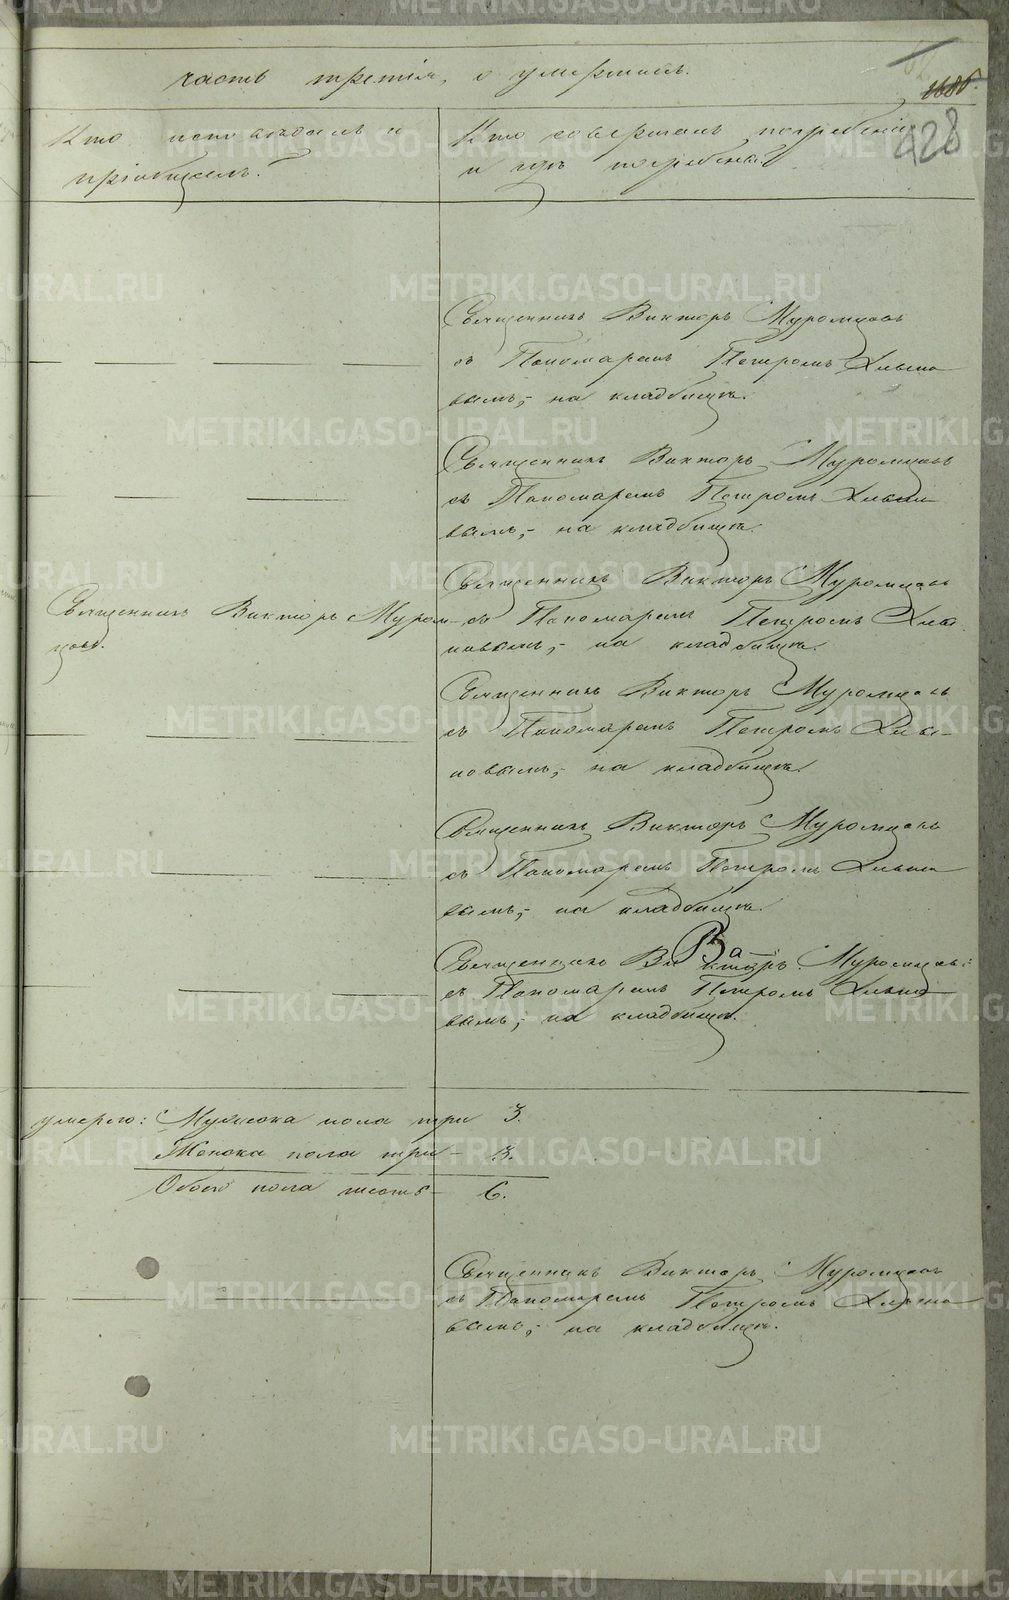 часть третiя, о умершихъ.
428
Кто исповѣдалъ и
прiобщалъ.
Кто совершалъ погребенiе
и гдѣ погребены
Священникъ Викторъ Муромцовъ
съ Пономаремъ Петромъ
вымъ, на кладбищѣ.
Священникъ Викторъ Муромцовъ
съ Пономаремъ Петромъ
вымъ, на кладбищѣ.
Священникъ Викторъ Муром-
цовъ.
Священникъ Викторъ Муромцовъ
съ Пономаремъ Петромъ
новымъ, на кладбищѣ.
Священникъ Викторъ Муромцовъ
съ Пономаремъ Петромъ
новымъ, на кладбищѣ.
Священникъ Викторъ Муромцовъ
съ Пономаремъ Петромъ
вымъ, на кладбищѣ.
Священникъ Викторъ Муромцовъ
съ Пономаремъ Петромъ
вымъ, на кладбищѣ.
умерло: Мужеска пола три 3.
Женска пола три 3.
Обоего пола шесть 6.
Священникъ Викторъ Муромцовъ
съ Пономаремъ Петромъ
вымъ, на кладбищѣ.
METRIKI.GASO-URAL.RU